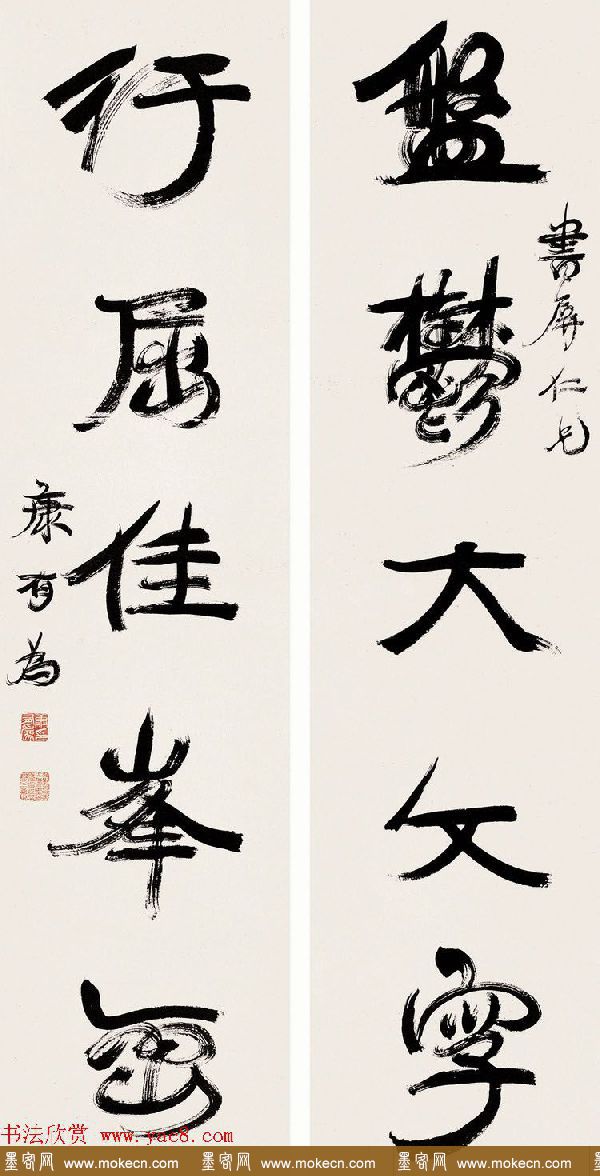 盤鬱大文字
書屏仁兄
行屈佳峯
康有為
书法欣赏 www.yac8.com
墨客网 www.mokecn.com 墨客网 www.mokecn.com 墨客网 www.mokecn.com